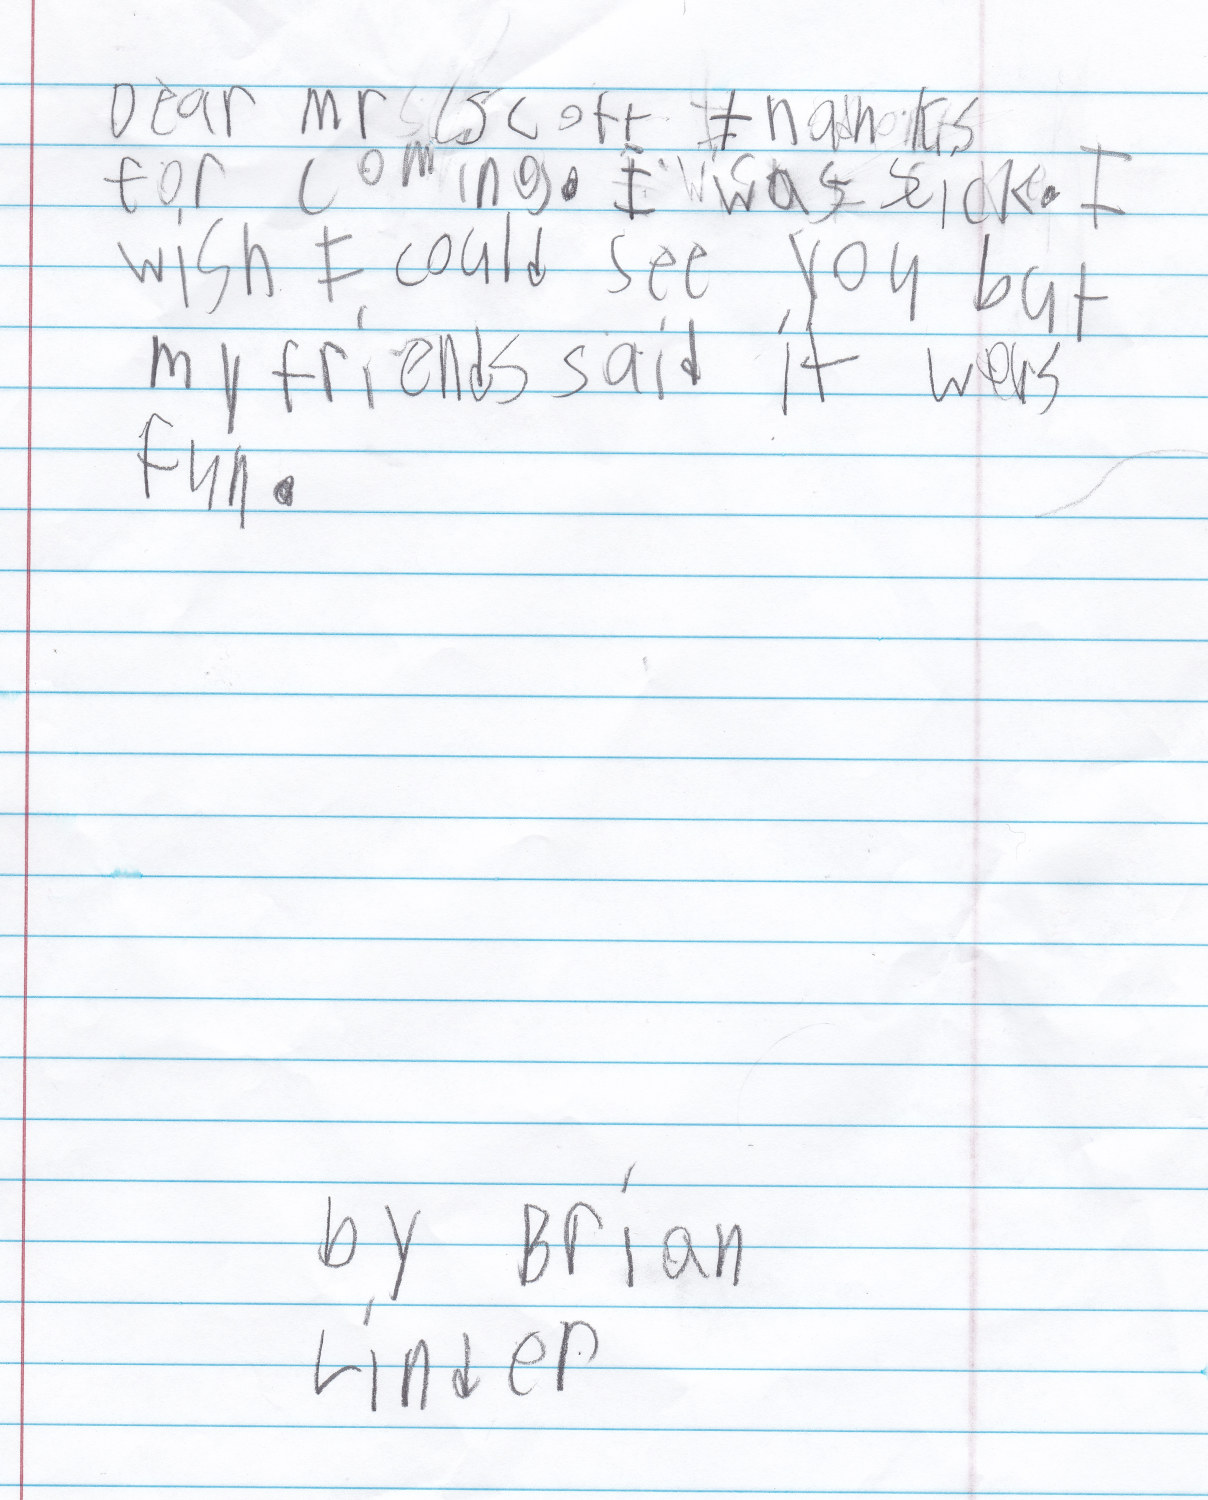 Dear mr scott thanks
for coming. I was sick. I
wish I could see you but
my friends said it was
fun.
by Brian
Linder